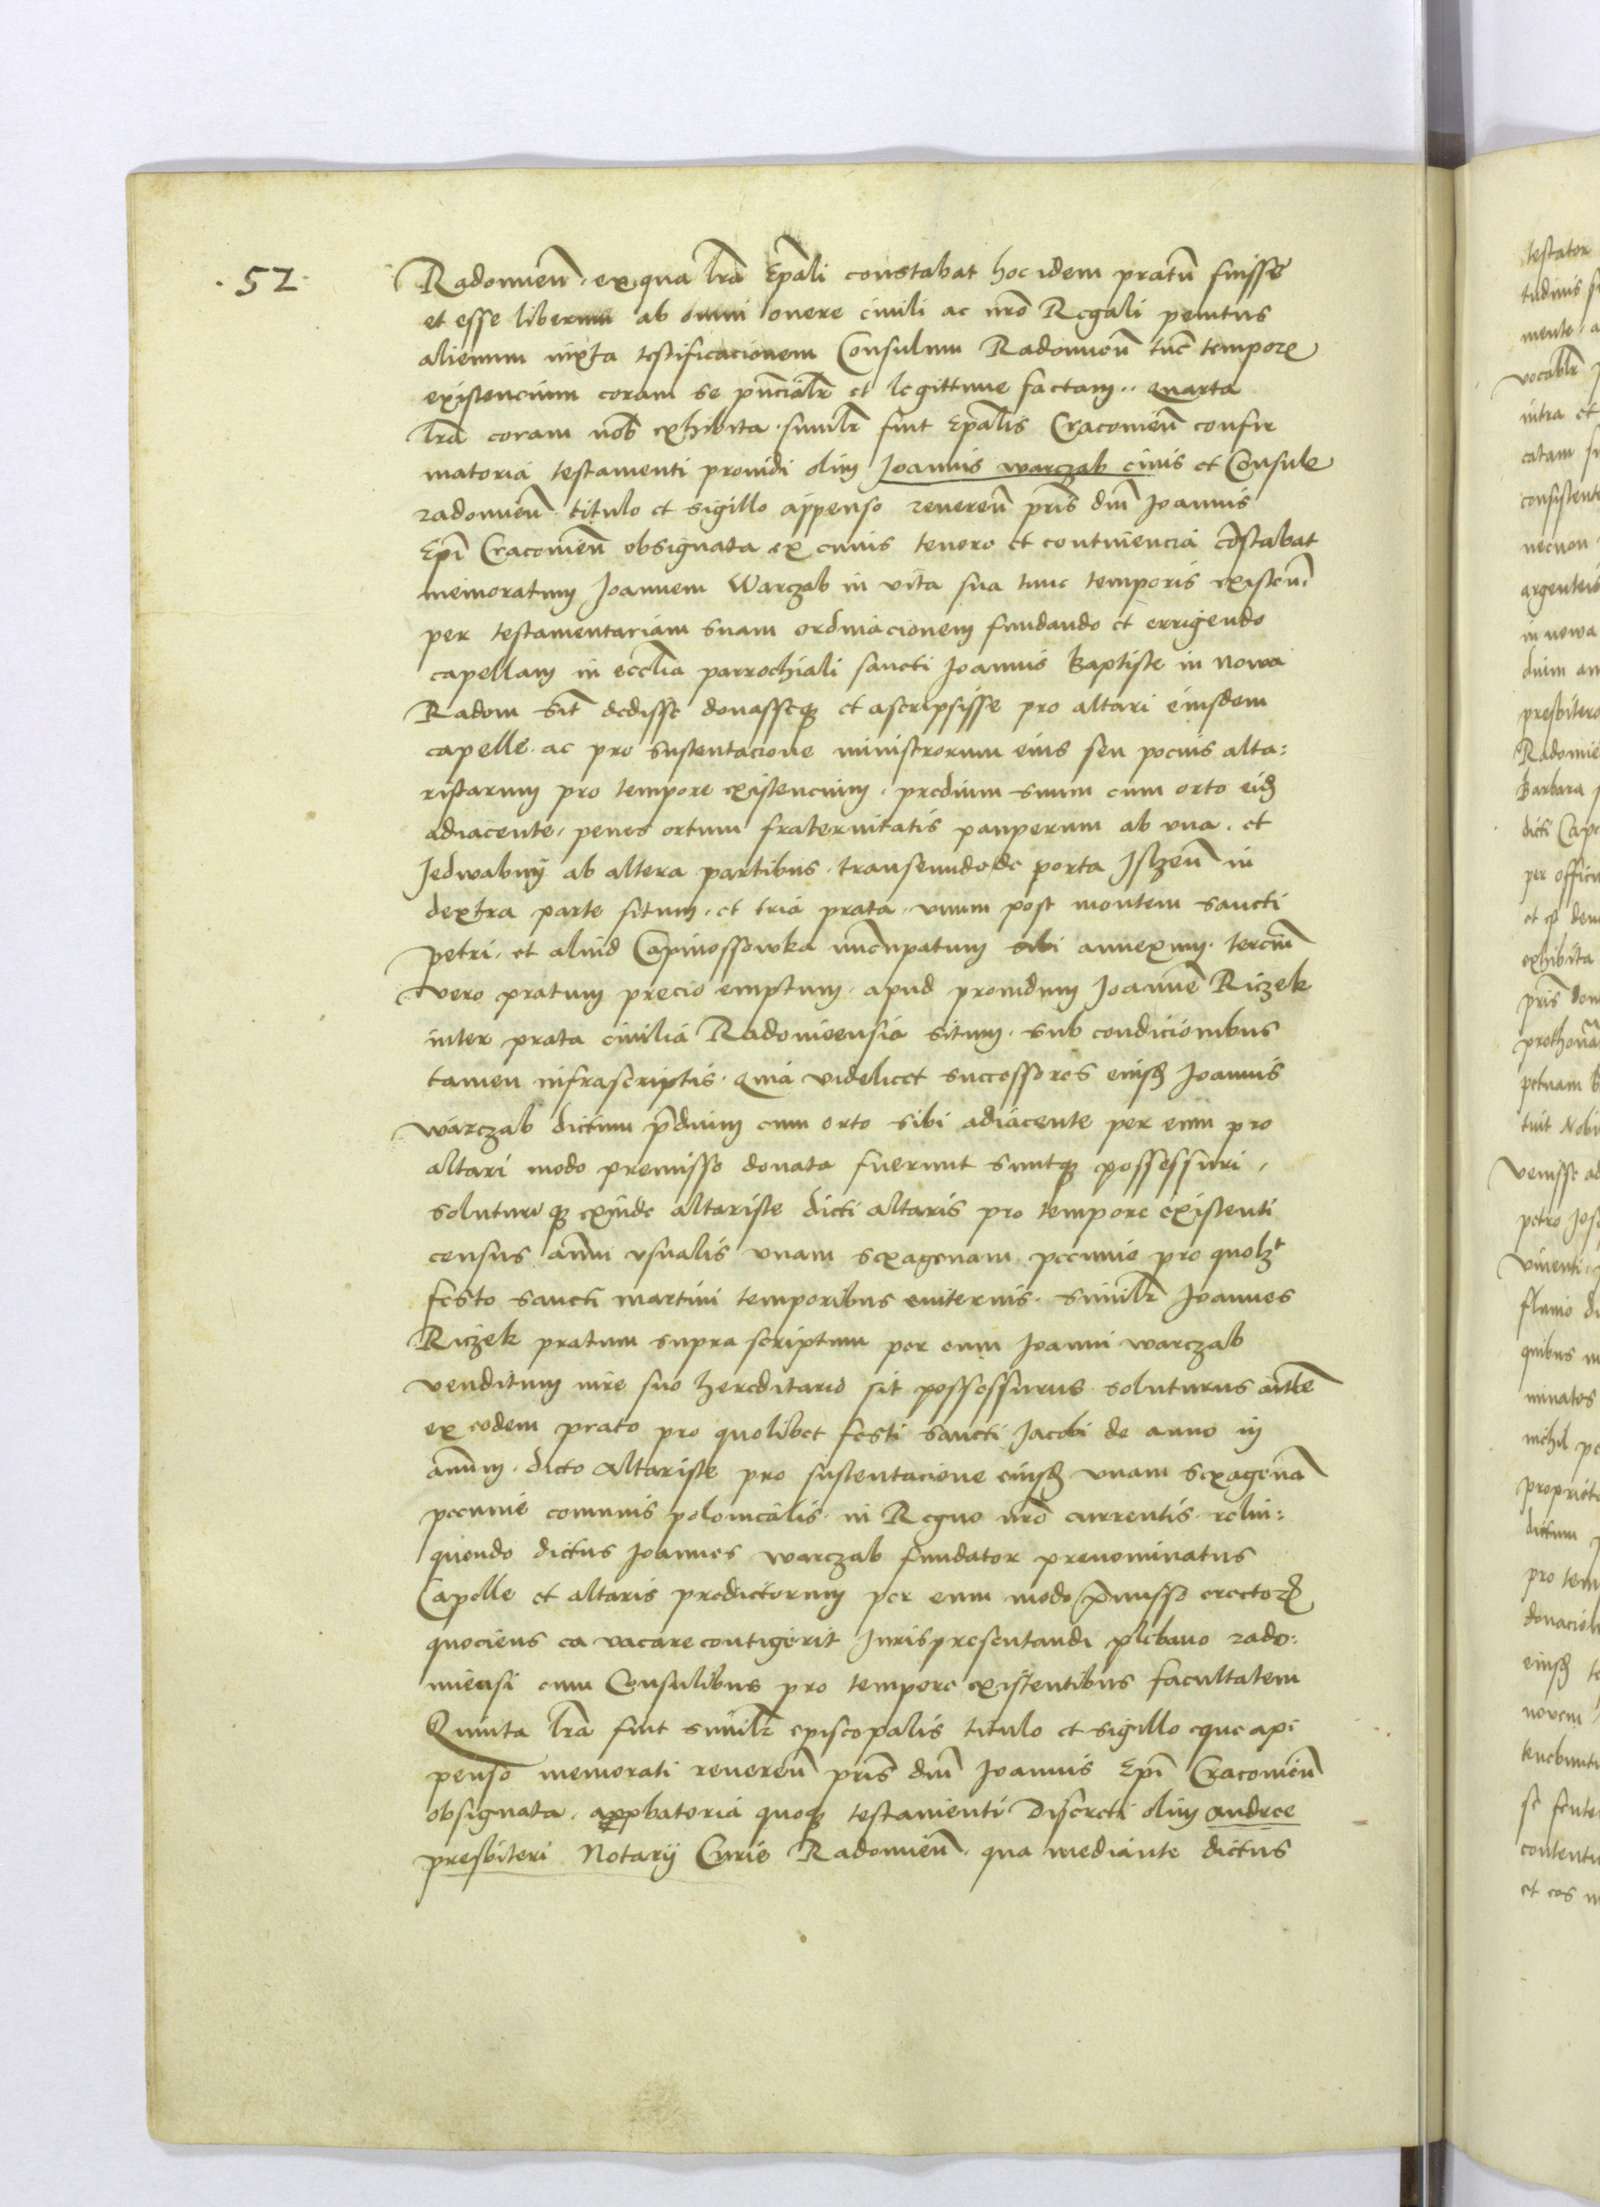 . 52 .
Radomien̄. ex qua l̄ra Ep̄ali constabat hoc idem pratū fuisse
et esse liberum ab omni onere ciuili ac nr̄o Regali penitus
alienum iuxta testificacionem Consulum Radomien̄ tūc tempore
existencium coram se pn̄cialr̄ et legittime factam.. quarta
l̄ra coram nob̄ exhibita. similr̄ fuit Ep̄alis Cracouien̄ confir
matoria testamenti prouidi olim Joannis warczab ciuis et Consule
radomien̄. titulo et sigillo appenso reueren̄ pr̄is dn̄i Joannis
Ep̄i Cracouien̄ obsignata ex cuius tenore et continencia cōstabat
memoratum Joannem Warczab in vita sua tunc temporis existen̄.
per testamentariam suam ordinacionem fundando et errigendo
capellam in eccl̄ia parrochiali sancti Joannis Baptiste in nowa
Radom sit̄ dedisse donasseq; et ascripsisse pro altari eiusdem
capelle. ac pro sustentacione ministrorum eius seu pocius alta:
ristarum pro tempore existencium. predium suum cum orto eid̄
adiacente, penes ortum fraternitatis pauperum ab vna. et
Jedwabny ab altera partibus. transeundo de porta Ilzen̄ in
dextra parte situm. et tria prata. vnum post montem sancti
Petri. et aliud Capinossowka nūcupatum sibi annexum. terciū
vero pratum precio emptum. apud prouidum Joannē Riczek
inter prata ciuilia Radomiensia situm. sub condicionibus
tamen infrascriptis. Quia videlicet successores eiusd̄ Joannis
warczab dictum p̄dium cum orto sibi adiacente per eum pro
altari modo premisso donata fuerunt suntq; possessuri,
soluturi q; exinde altariste dicti altaris pro tempore existenti
census anni vsualis vnam sexagenam pecunie pro quolzt
festo sancti martini temporibus euiternis. Similr̄ Joannes
Riczek pratum supra scriptum per eum Joanni warczab
venditum iure suo hereditario sit possessurus. soluturus autē
ex eodem prato pro quolibet festi sancti Jacobi de anno in
annum. dicto Altariste pro sustentacione eiusd̄ vnam sexagenā
pecunie comunis polonicalis. in Regno nr̄o currentis. relin:
quendo dictus Joannes warczab fundator prenominatus
Capelle et altaris predictorum per eum modo p̄misso erectorꝝ
quociens ea vacare contigerit Juris presentandi plebano rado:
miensi cum Consulibus pro tempore existentibus facultatem
Quinta l̄ra fuit similr̄ episcopalis titulo et sigillo eque ap:
penso memorati reueren̄ pr̄is dn̄i Joannis Ep̄i Cracouien̄
obsignata. approbatoria quoq; testamenti Discreti olim andree
presbiteri Notarij Curie Radomien̄. qua mediante dictus